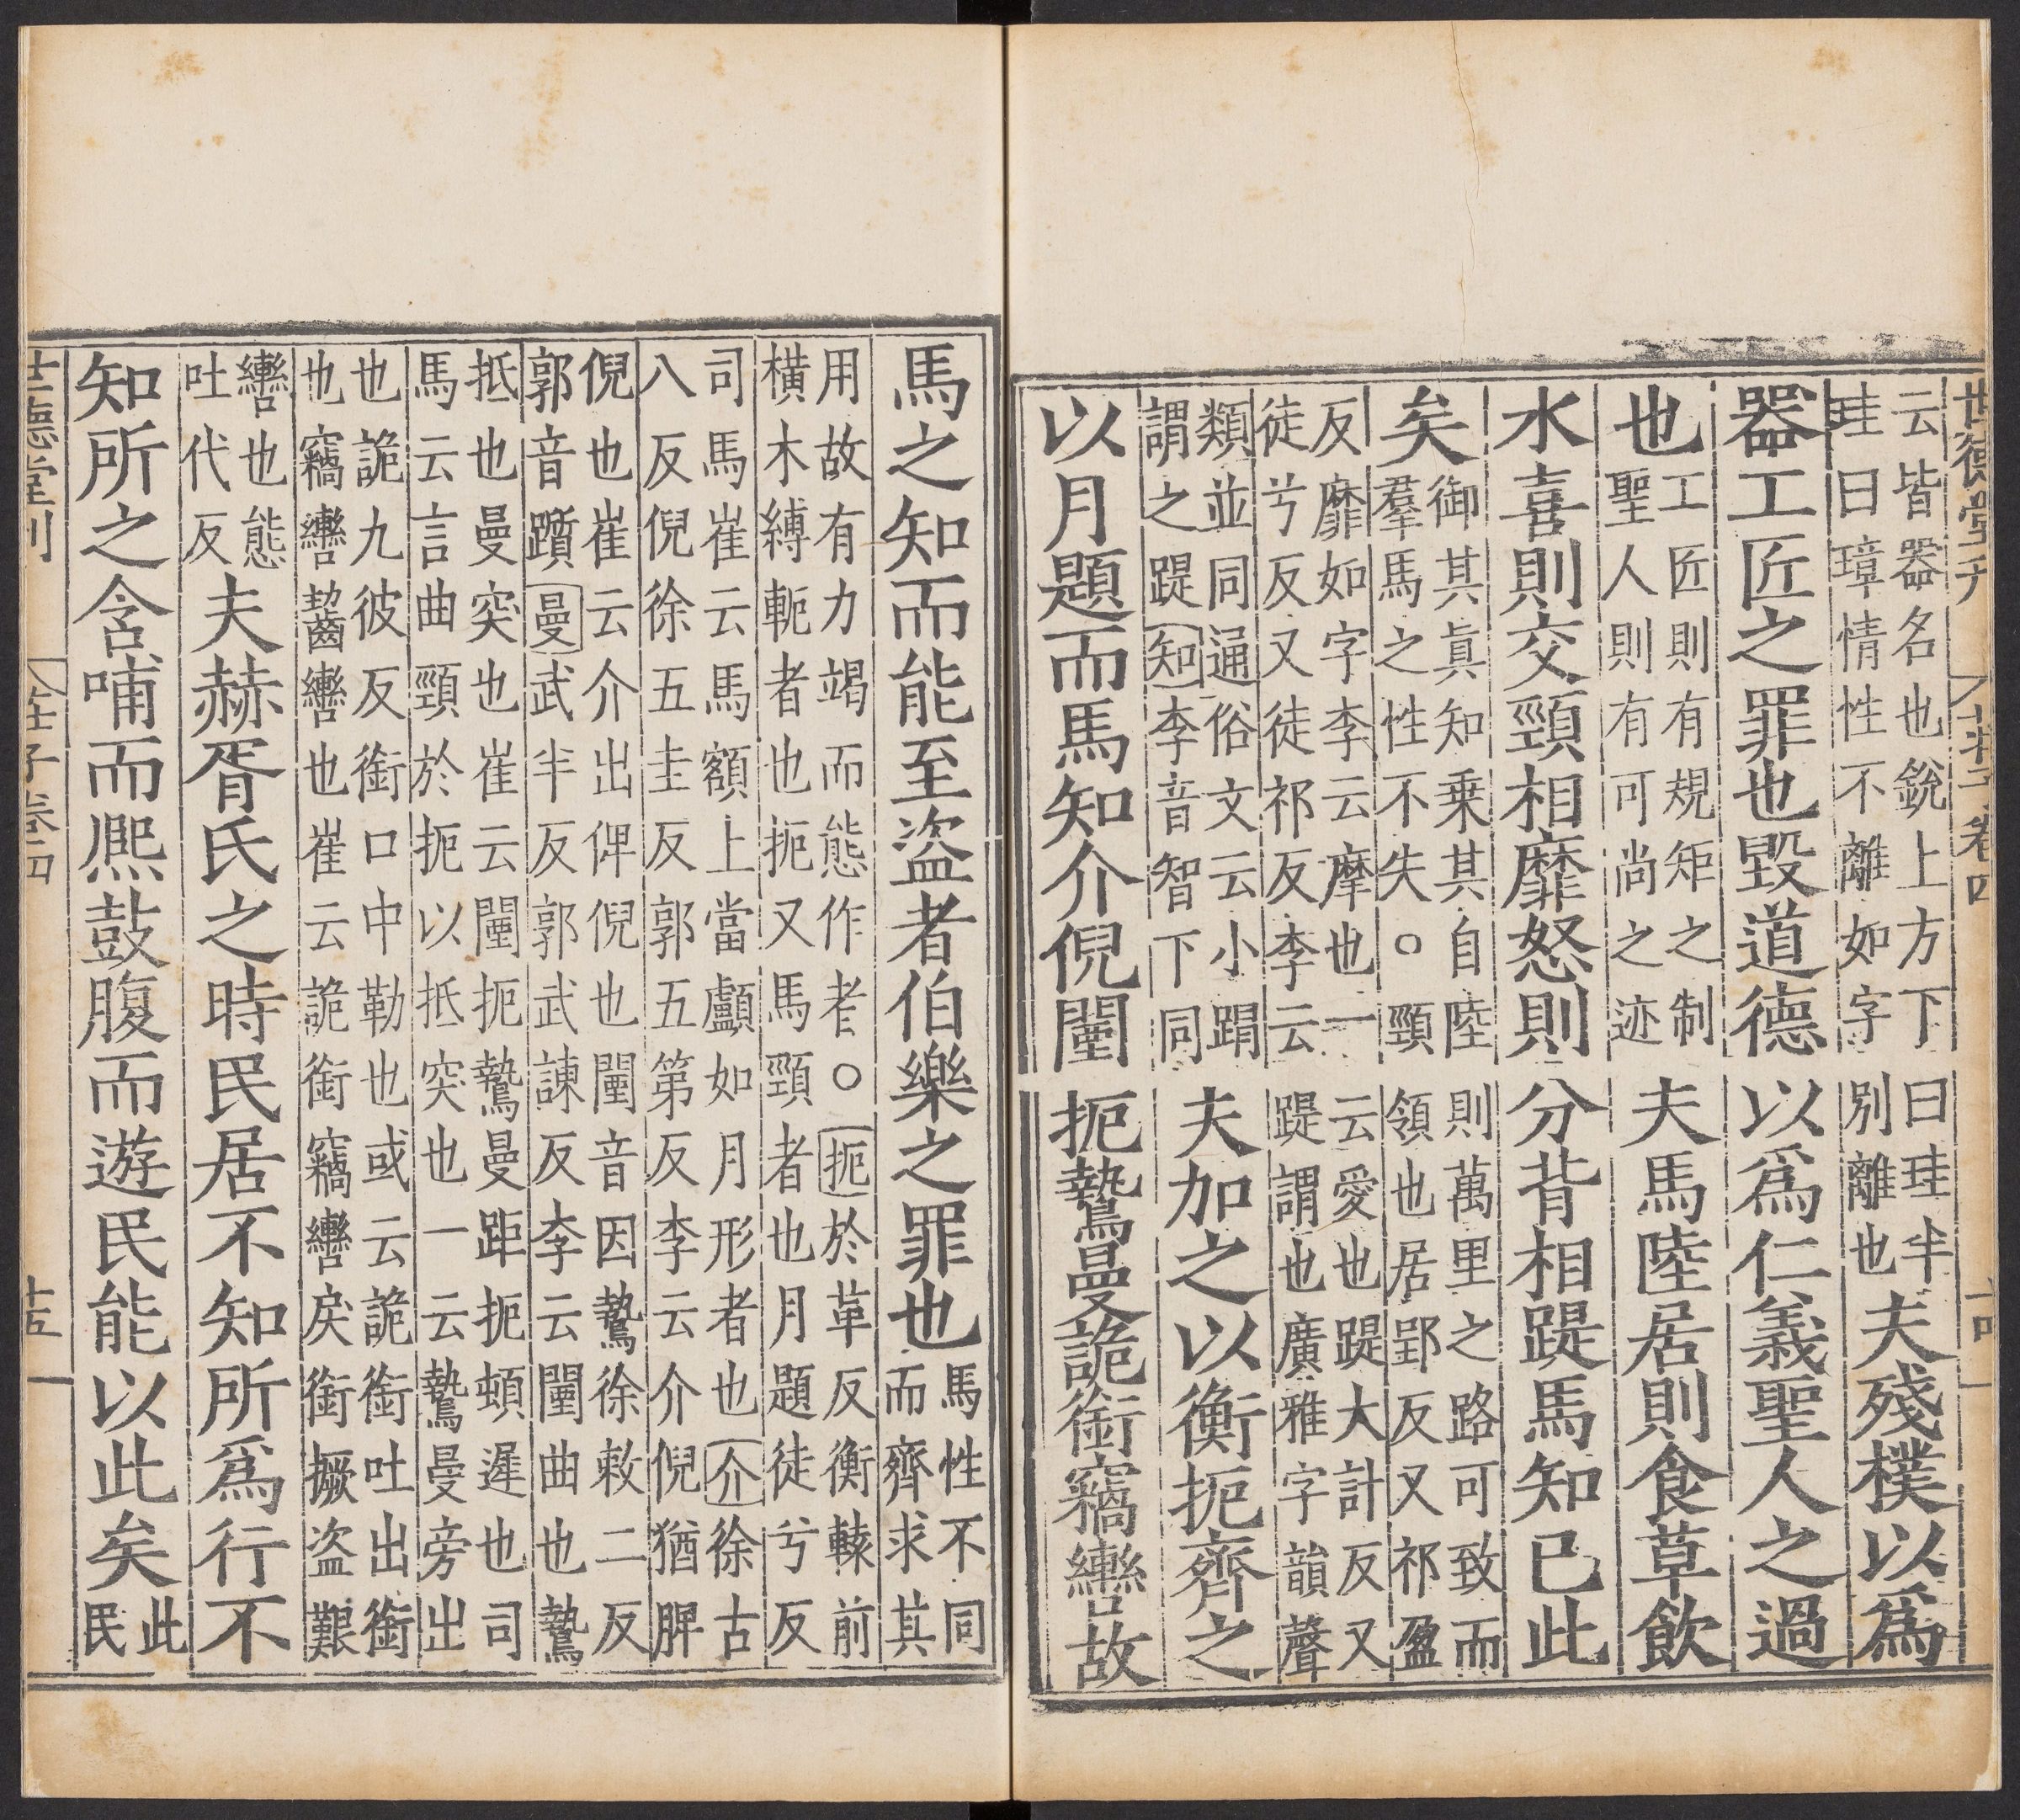 世德堂刊 莊子卷四 十四
云皆器名也銳上方下曰珪半
珪曰璋情性不離如字別離也
夫殘樸以爲
器工匠之罪也毀道德以爲仁義聖人之過
也
工匠則有規矩之制
聖人則有可尚之迹
夫馬陸居則食草飲
水喜則交頸相靡怒則分背相踶馬知已此
矣
御其眞知乗其自陸則萬里之路可致而
羣馬之性不失○頸領也居郢反又祁盈
反靡如字李云摩也一云愛也踶大計反又
徒兮反又徒祁反李云踶謂也廣雅字韻聲
類並同通俗文云小蹋
謂之踶知李音智下同
夫加之以衡扼齊之
以月題而馬知介倪闉扼鷙曼詭銜竊轡故
馬之知而能至盜者伯樂之罪也
馬性不同
而齊求其
用故有力竭而態作者○扼於革反衡轅前
橫木縛軛者也扼又馬頸者也月題徒兮反
司馬崔云馬額上當顱如月形者也介徐古
八反倪徐五圭反郭五第反李云介倪猶脾
倪也崔云介出俾倪也闉音因鷙徐敕二反
郭音躓曼武半反郭武諫反李云闉曲也鷙
抵也曼突也崔云闉扼鷙曼距扼頓遲也司
馬云言曲頸於扼以抵突也一云鷙曼旁出
也詭九彼反銜口中勒也或云詭銜吐出銜
也竊轡齧轡也崔云詭銜竊轡戾銜橛盜艱
轡也態
吐代反
夫赫胥氏之時民居不知所爲行不
知所之含哺而熈鼓腹而遊民能以此矣
此
民
世德堂刊 莊子卷四 十五